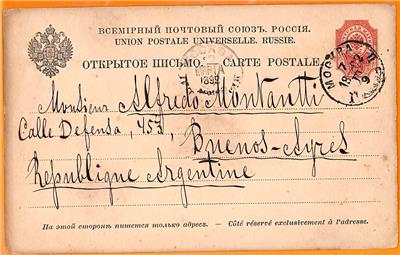 ВСЕМІРНЫЙ ПОЧТОВЫЙ СОЮЗЪ. РОССІЯ.
UNION POSTALE UNIVERSELLE. RUSSIE.
ОТКРЫТОЕ ПИСЬМО. CARTE POSTALE.
МОСКВА
1892
Monsieur Alfredo Montantti
Calle Defensa, 453,
Buenos-Ayres
République Argentine
На этой сторонѣ пишется только адресъ. – Côté réservé exclusivement à l'adresse.